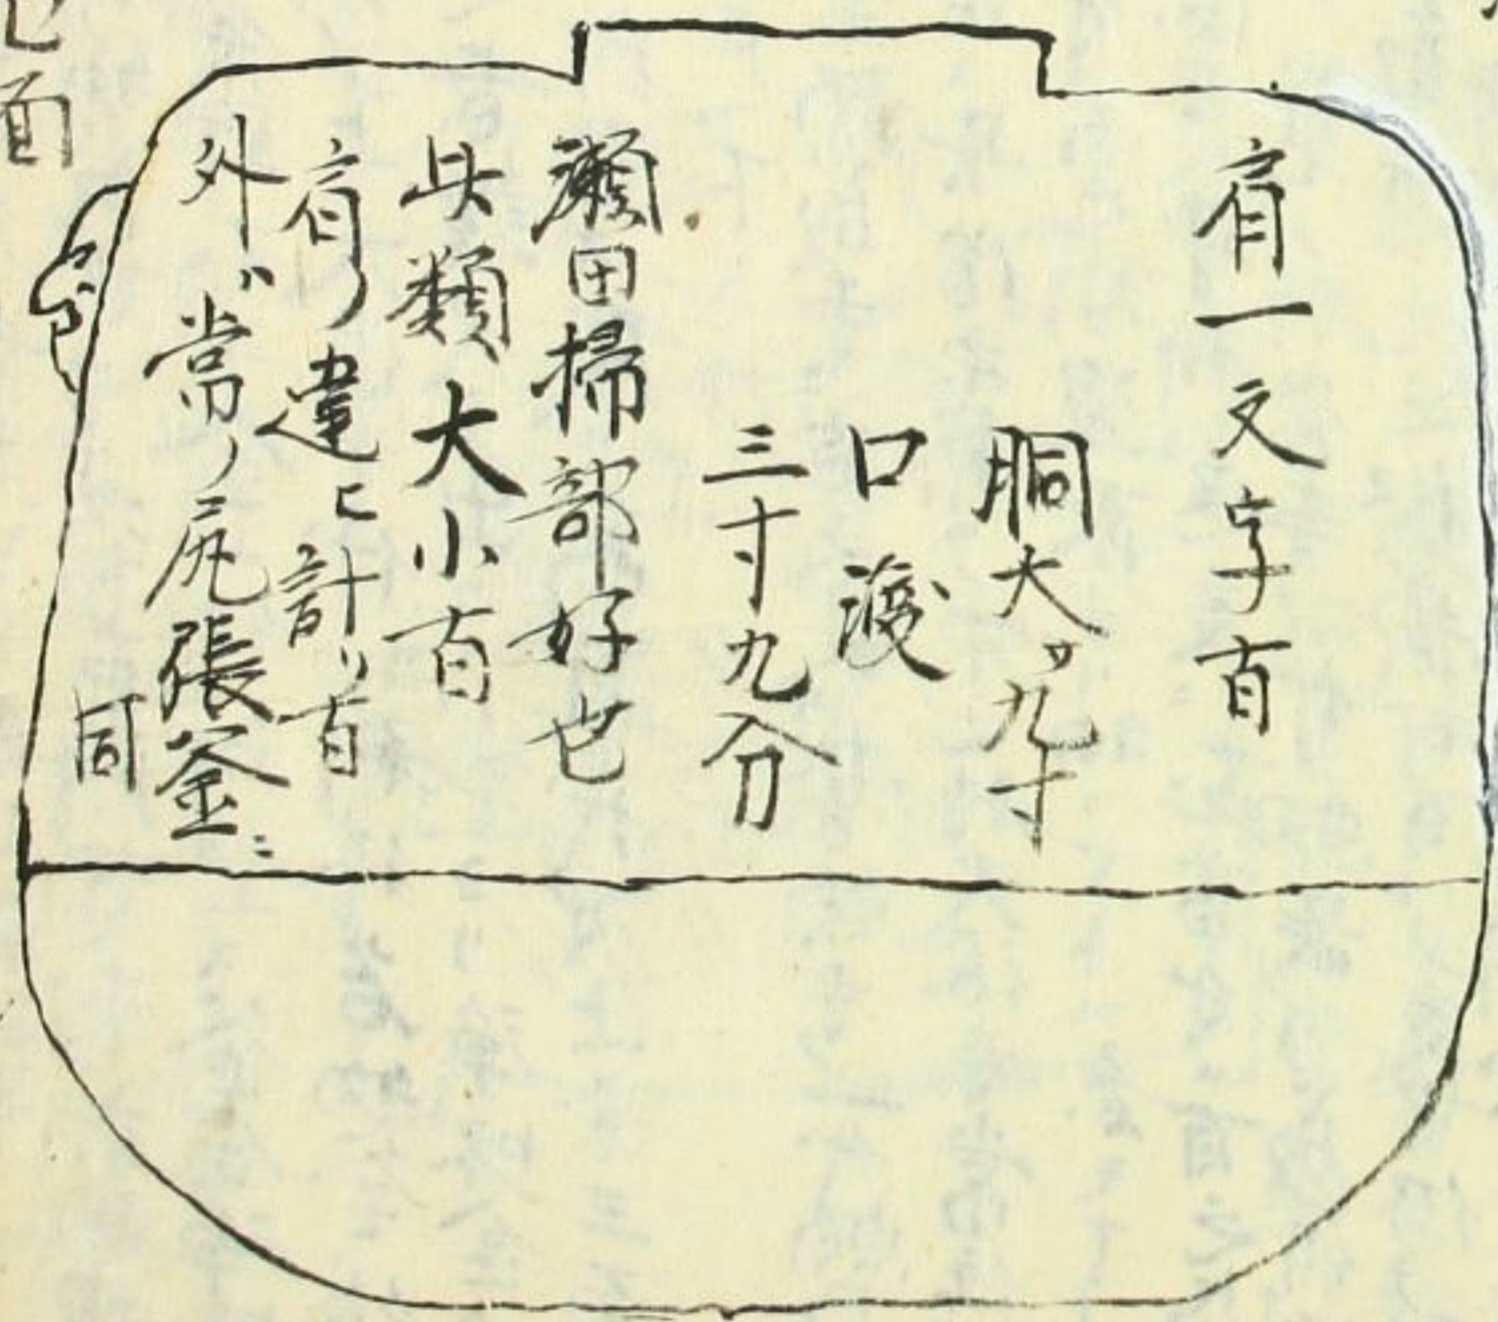 肩一文字有
胴大サ九寸
口渡
三寸九分
瀬田掃部好也
此類大小有
肩ノ違ヒ計リ有
外ハ常ノ尻張釜ニ
同